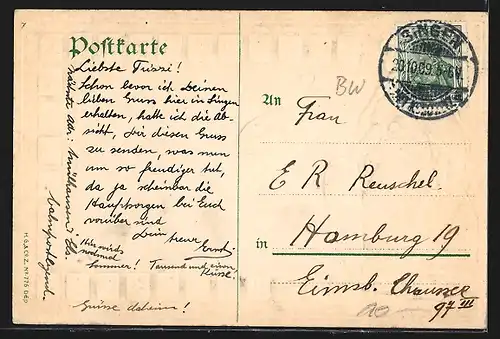 Postkarte
Liebste Trüssi!
Schon bevor ich Deinen
lieben Gruss hier in Singen
erhalten, hatte ich die Ab-
sicht, Dir diesen Gruss
zu senden, was nun
um so freudiger tut,
da ja scheinbar die
Hauptsorgen bei Euch
vorüber sind
Dein
treuer Ernst.
Tausend und einen
Küsse!
Grüsse daheim!
nächste Adr: Mülhausen i. Els.
bahnpostlagernd.
SINGEN
20.10.09.
BW
An
Frau
E R Reuschel
in
Hamburg 19
Eimsb. Chaussee
97 III
20